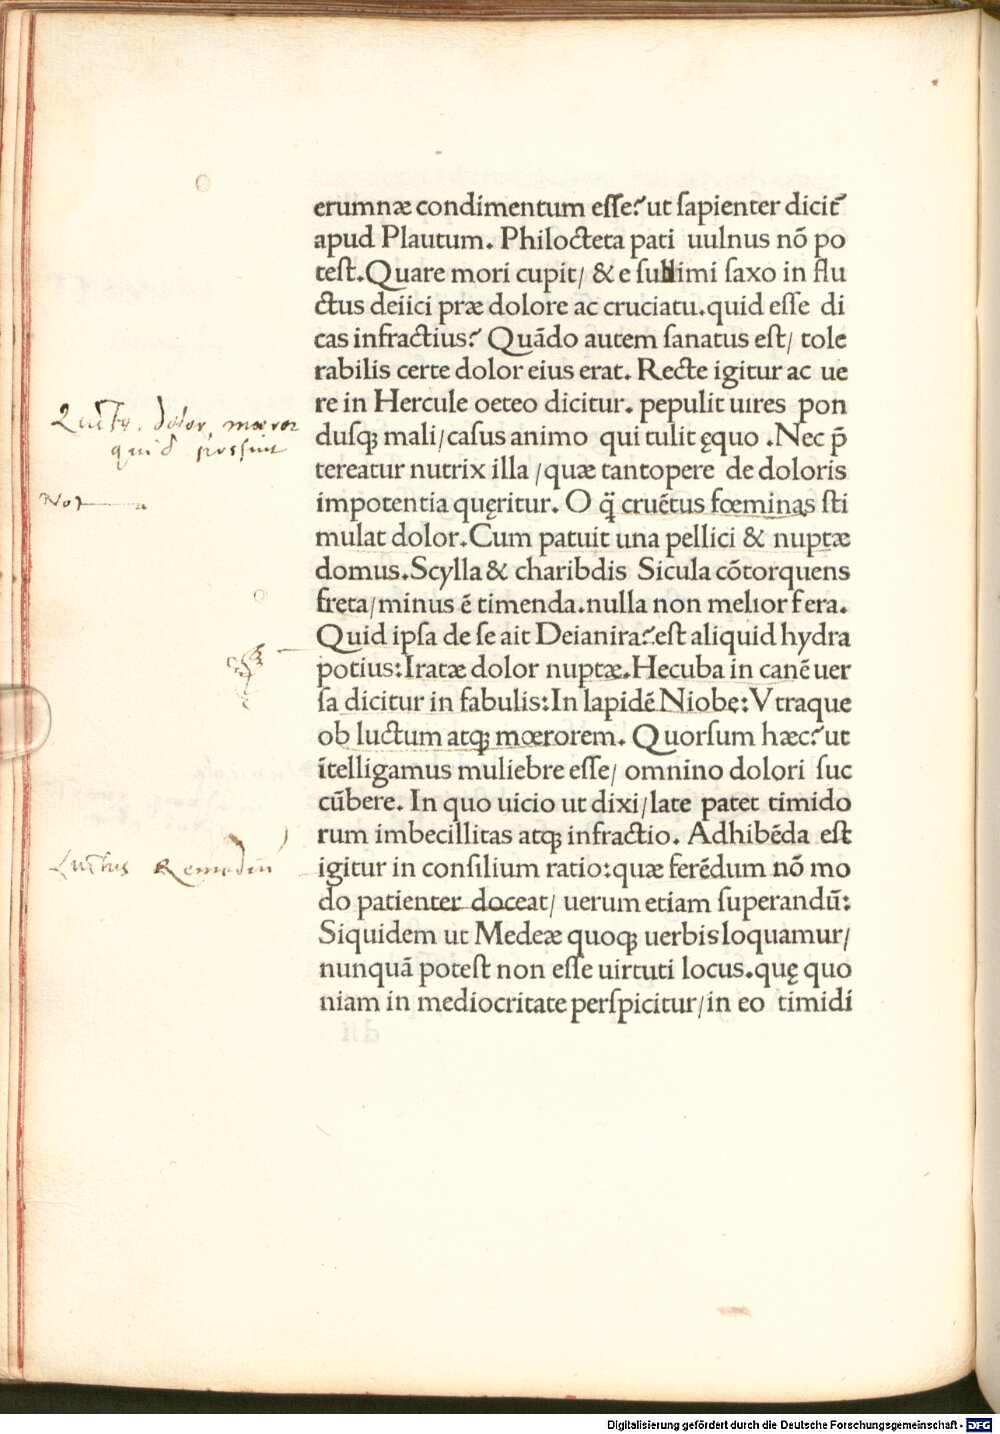 erumnæ condimentum esse? ut sapienter dicit᷒
apud Plautum. Philocteta pati uulnus nō po
test. Quare mori cupit/ & e sublimi saxo in flu
ctus deiici præ dolore ac cruciatu. quid esse di
cas infractius? Quādo autem sanatus est/ tole
rabilis certe dolor eius erat. Recte igitur ac ue
re in Hercule oeteo dicitur. pepulit uires pon
dusꝗ mali/ casus animo qui tulit ęquo. Nec p̄
tereatur nutrix illa/ quæ tantopere de doloris
impotentia quęritur. O q̄̈ cruētus fœminas sti
mulat dolor. Cum patuit una pellici & nuptæ
domus. Scylla & charibdis Sicula cōtorquens
freta/ minus ē timenda. nulla non melior fera.
Quid ipsa de se ait Deianira? est aliquid hydra
potius: Iratæ dolor nuptæ. Hecuba in canē uer
sa dicitur in fabulis: In lapidē Niobe: Vtraque
ob luctum atꝗ mœrorem. Quorsum hæc? ut
ītelligamus muliebre esse/ omnino dolori suc
cūbere. In quo uicio ut dixi/ late patet timido
rum imbecillitas atꝗ infractio. Adhibēda est
igitur in consilium ratio: quæ ferēdum nō mo
do patienter doceat/ uerum etiam superandū:
Siquidem ut Medeæ quoꝗ uerbis loquamur/
nunquā potest non esse uirtuti locus. quę quo
niam in mediocritate perspicitur/ in eo timidi
dolor, mœror
quid possint
Not
Luctus Remediū
Digitalisierung gefördert durch die Deutsche Forschungsgemeinschaft - DFG